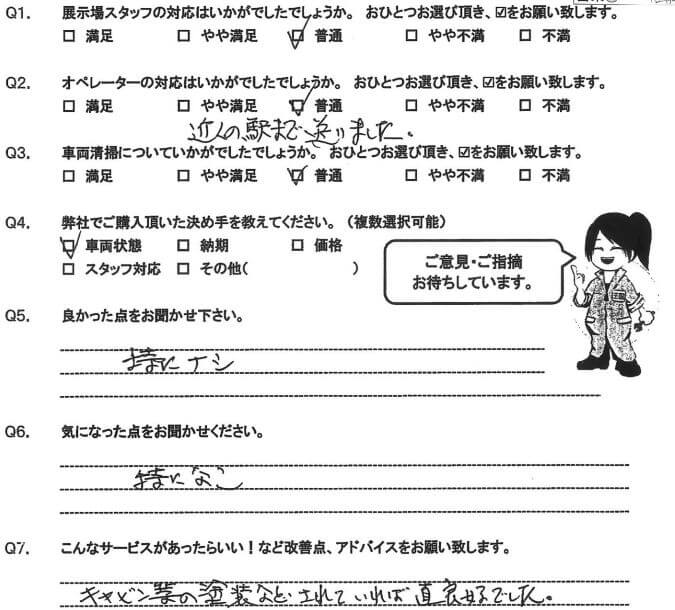 Q1. 展示場スタッフの対応はいかがでしたでしょうか。 おひとつお選び頂き、☑をお願い致します。
□ 満足 □ やや満足 ☑ 普通 □ やや不満 □ 不満
Q2. オペレーターの対応はいかがでしたでしょうか。 おひとつお選び頂き、☑をお願い致します。
□ 満足 □ やや満足 ☑ 普通 □ やや不満 □ 不満
近くの駅まで送りました。
Q3. 車両清掃についていかがでしたでしょうか。 おひとつお選び頂き、☑をお願い致します。
□ 満足 □ やや満足 ☑ 普通 □ やや不満 □ 不満
Q4. 弊社でご購入頂いた決め手を教えてください。（複数選択可能）
☑ 車両状態 □ 納期 □ 価格
□ スタッフ対応 □ その他( )
ご意見・ご指摘
お待ちしています。
Q5. 良かった点をお聞かせ下さい。
特にナシ
Q6. 気になった点をお聞かせください。
特になし
Q7. こんなサービスがあったらいい！など改善点、アドバイスをお願い致します。
キャビン等の塗装などされていれば直良好でした。